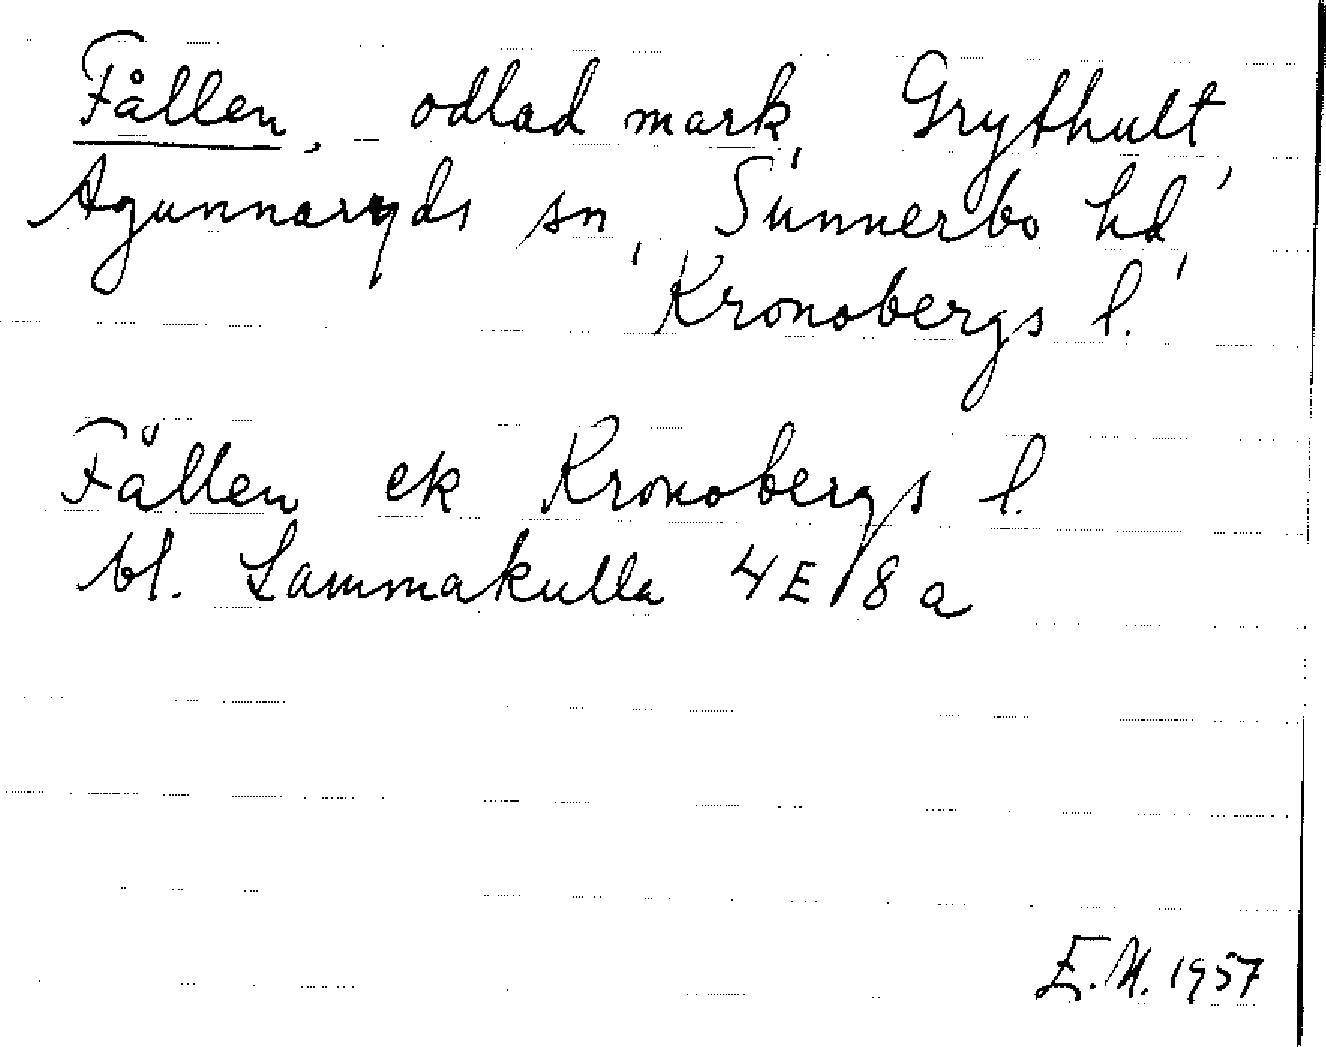 Fållen, odlad mark, Grythult,
Agunnaryds sn, Sunnerbo hd,
Kronobergs l.
Fällen ek Kronobergs l.
bl. Lammakulla 4E/8a
E.M. 1957